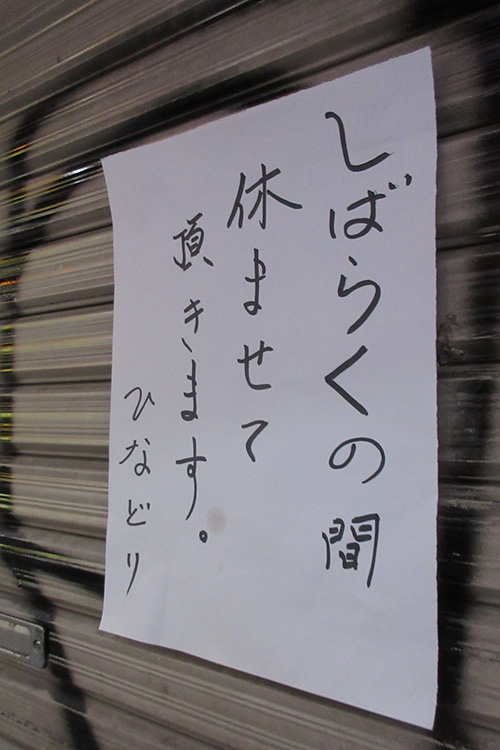 しばらくの間
休ませて
頂きます。
ひなどり